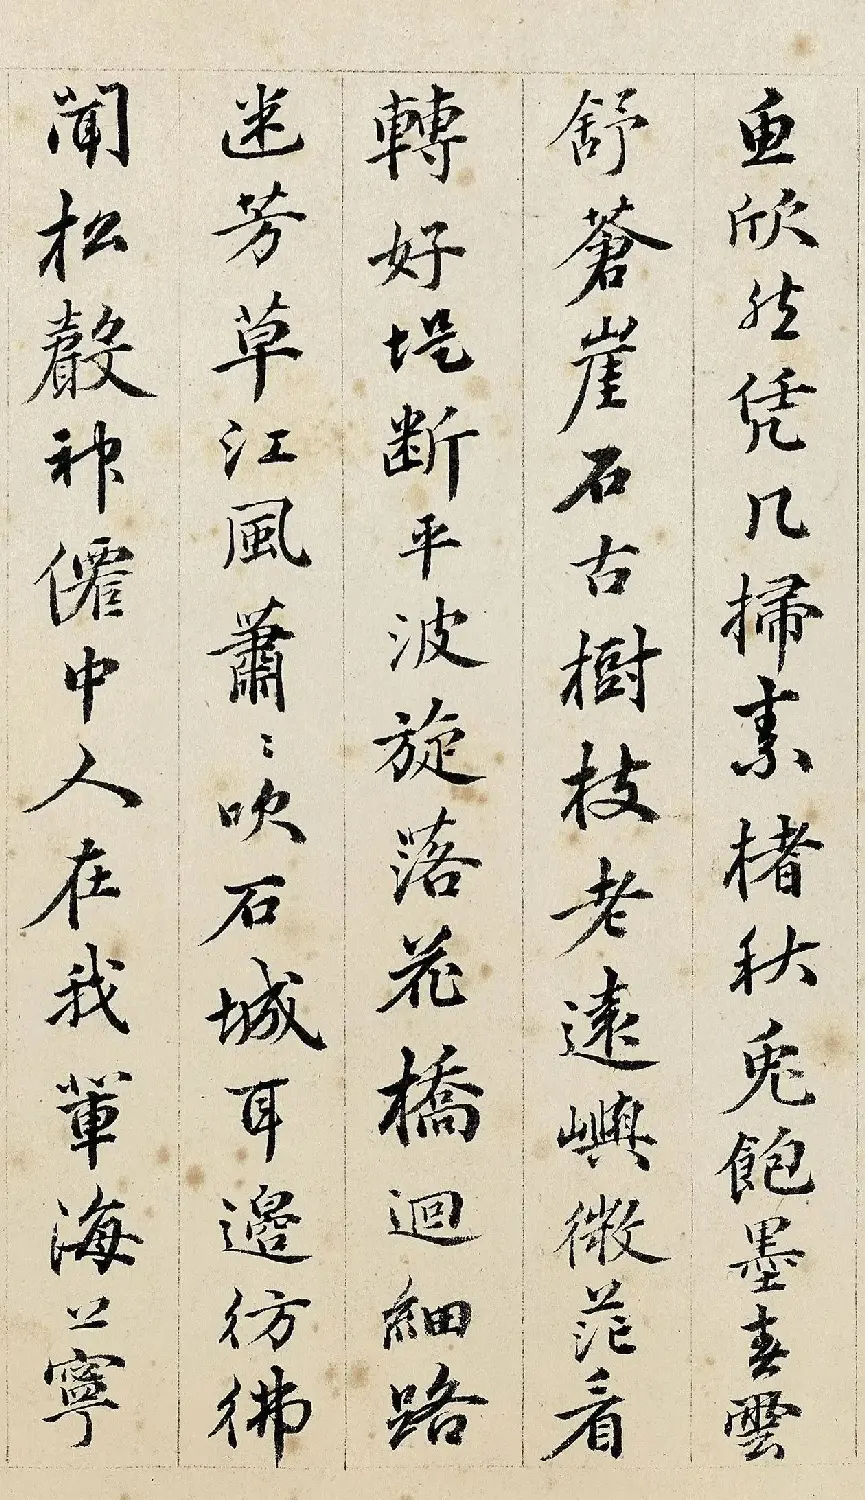 欣然凭几掃素楮秋兔飽墨春雲
舒蒼崖石古樹枝老遠嶼微茫看
轉好堤断平波旋落花橋迴細路
迷芳草江風蕭〻吹石城耳邊彷彿
聞松聲神僊中人在我輩海上寧